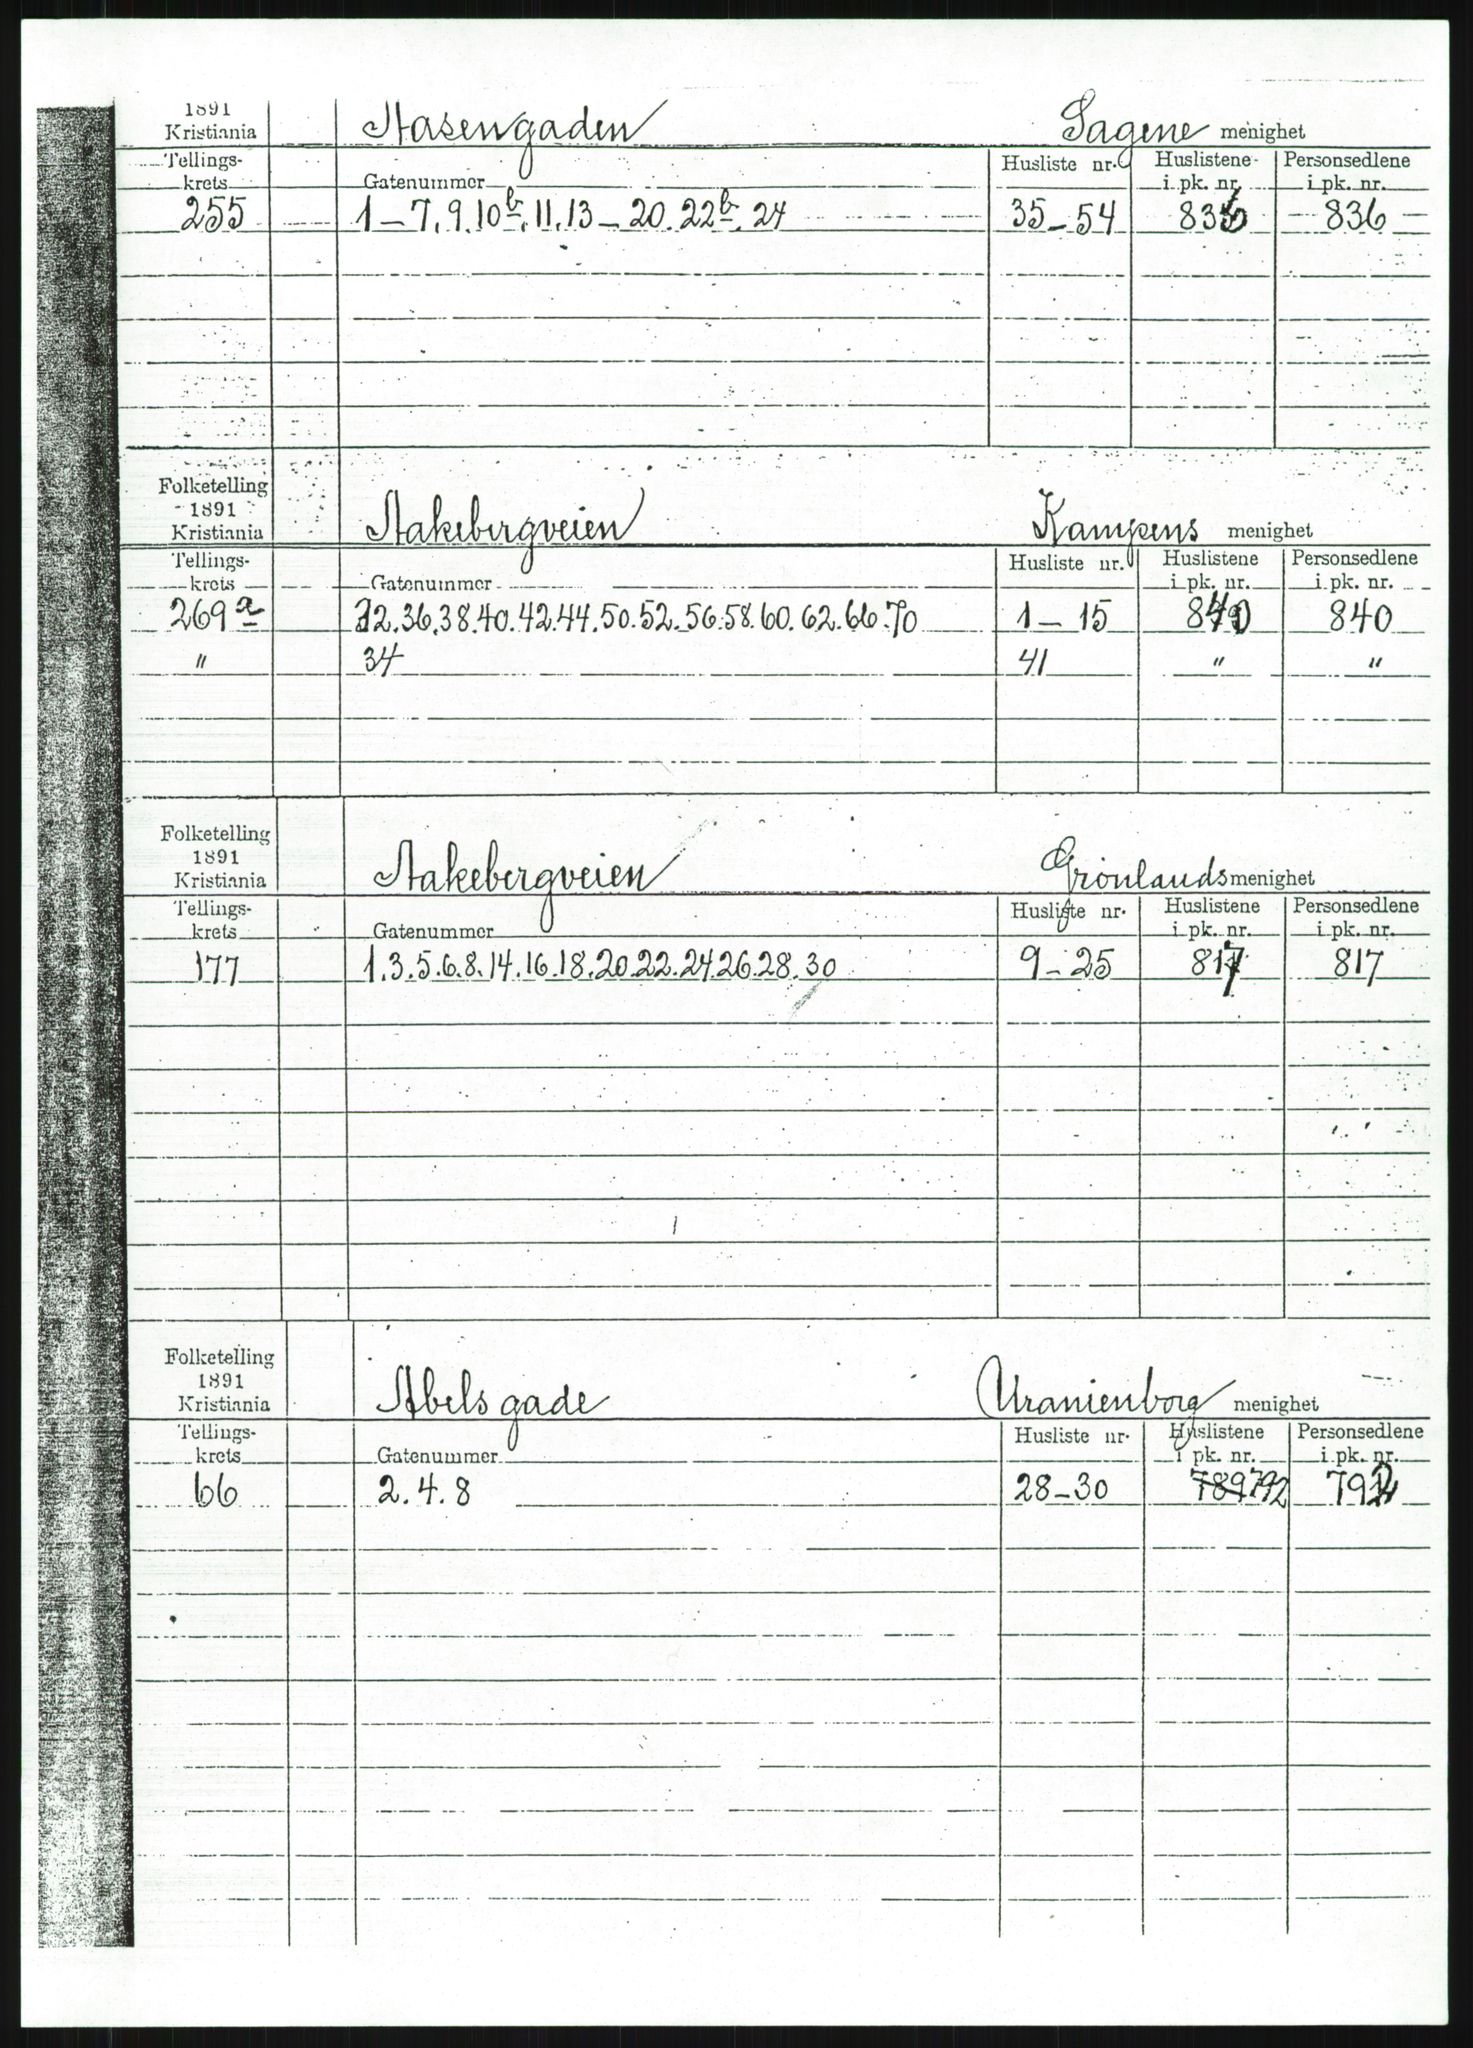 1891
Kristiania Aasengaden Sagene menighet
Tellings-krets Gatenummer Husliste nr. Huslistene i pk. nr. Personsedlene i pk. nr.
255 1–7. 9. 10b. 11. 13–20. 22b. 24 35–54 836 836
Folketelling
1891
Kristiania Aakebergveien Kampens menighet
Tellings-krets Gatenummer Husliste nr. Huslistene i pk. nr. Personsedlene i pk. nr.
269a 32. 36. 38. 40. 42. 44. 50. 52. 56. 58. 60. 62. 66. 70 1–15 840 840
" 34 41 " "
Folketelling
1891
Kristiania Aakebergveien Grønlands menighet
Tellings-krets Gatenummer Husliste nr. Huslistene i pk. nr. Personsedlene i pk. nr.
177 1. 3. 5. 6. 8. 14. 16. 18. 20. 22. 24. 26. 28. 30 9–25 817 817
Folketelling
1891
Kristiania Abelsgade Uranienborg menighet
Tellings-krets Gatenummer Husliste nr. Huslistene i pk. nr. Personsedlene i pk. nr.
66 2. 4. 8 28–30 789 792 792